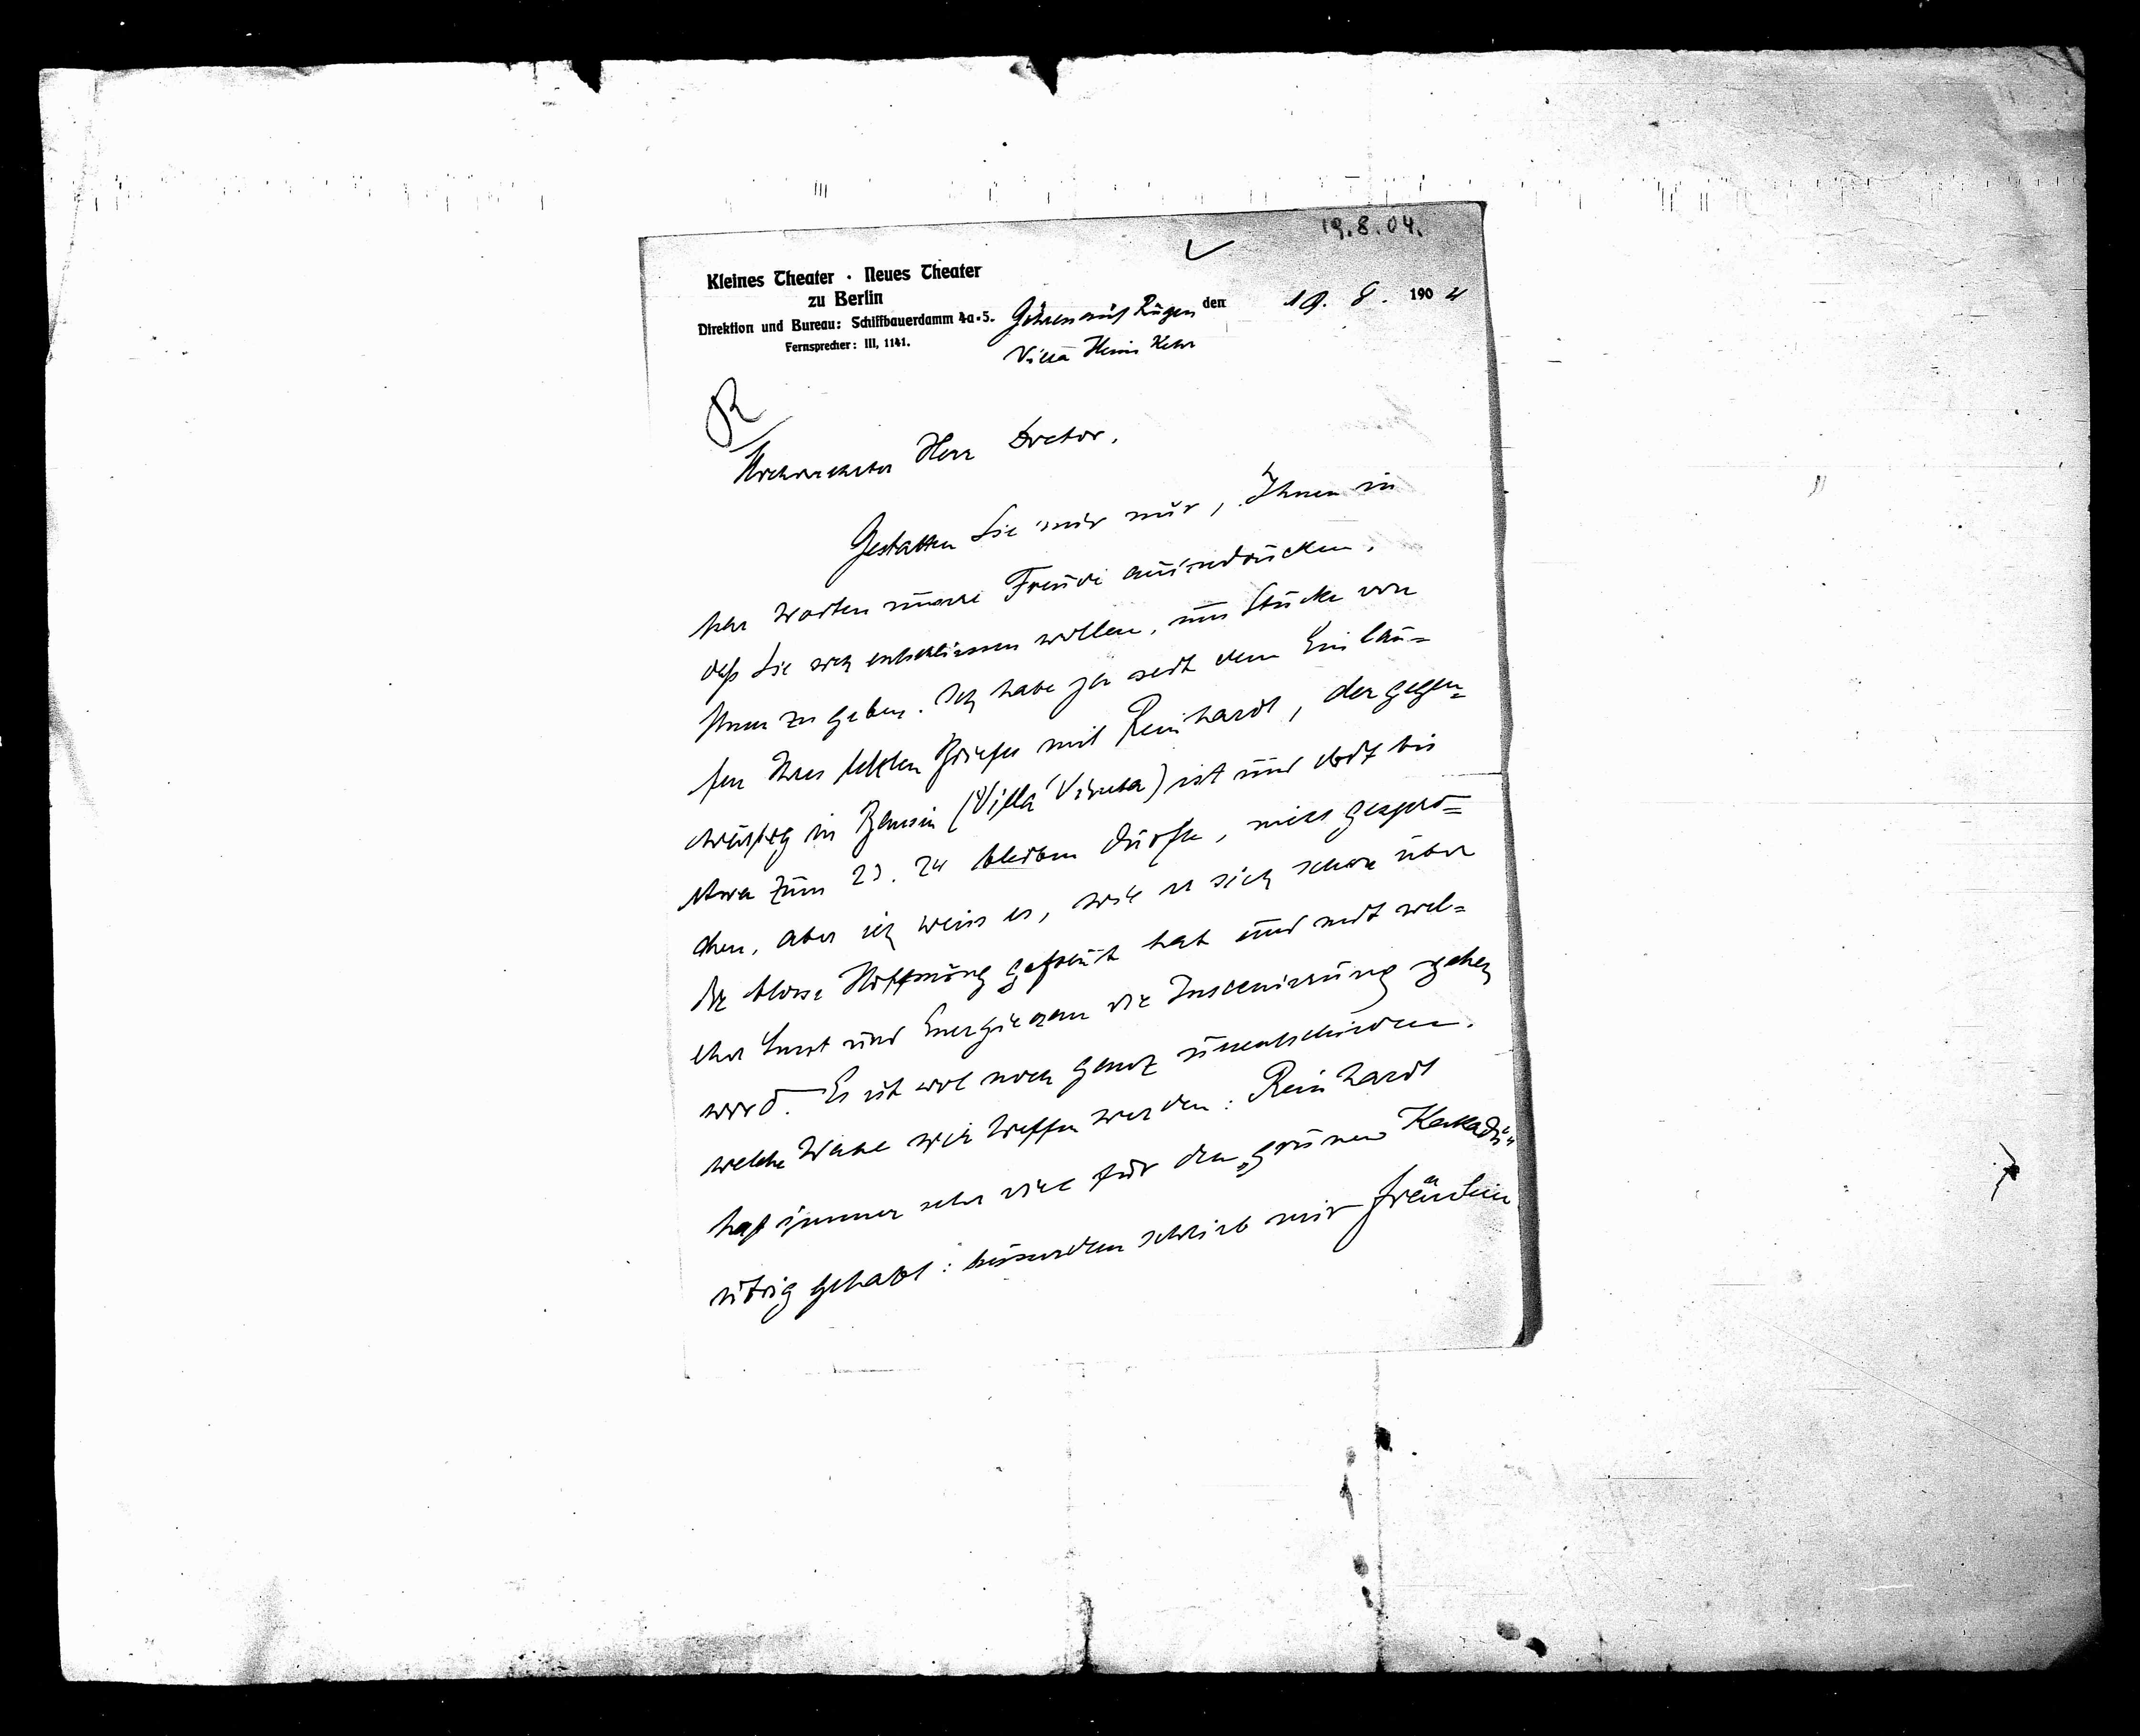 19.8.04.
Kleines Theater · Neues Theater
zu Berlin
Direktion und Bureau: Schiffbauerdamm 4a-5.
Fernsprecher: III, 1141.
Göhren auf Rügen den 19. 8. 1904
Villa
R
Hochverehrter Herr Doctor,
Gestatten Sie mir nur, Ihnen in
Worten unsere Freude auszudrücken,
daß Sie sich entschliessen wollen, uns Stücke von
Ihnen zu geben. Ich habe ja seit dem Einlau=
fen Ihres letzten Briefes mit Reinhardt, der gegen=
wärtig in Bansin (Villa ) ist und dort bis
etwa zum 23. 24 bleiben dürfte, nicht gespro=
chen, aber ich weiss es, wie er sich schon über
die blosse Hoffnung gefreut hat und mit wel=
cher Lust und Energie er an die Inscenierung gehen
wird. Es ist wol noch ganz unentschieden,
welche Wahl wir treffen werden: Reinhardt
hat immer sehr viel für den „grünen Kakadu"
übrig gehabt: schrieb mir Fräulein